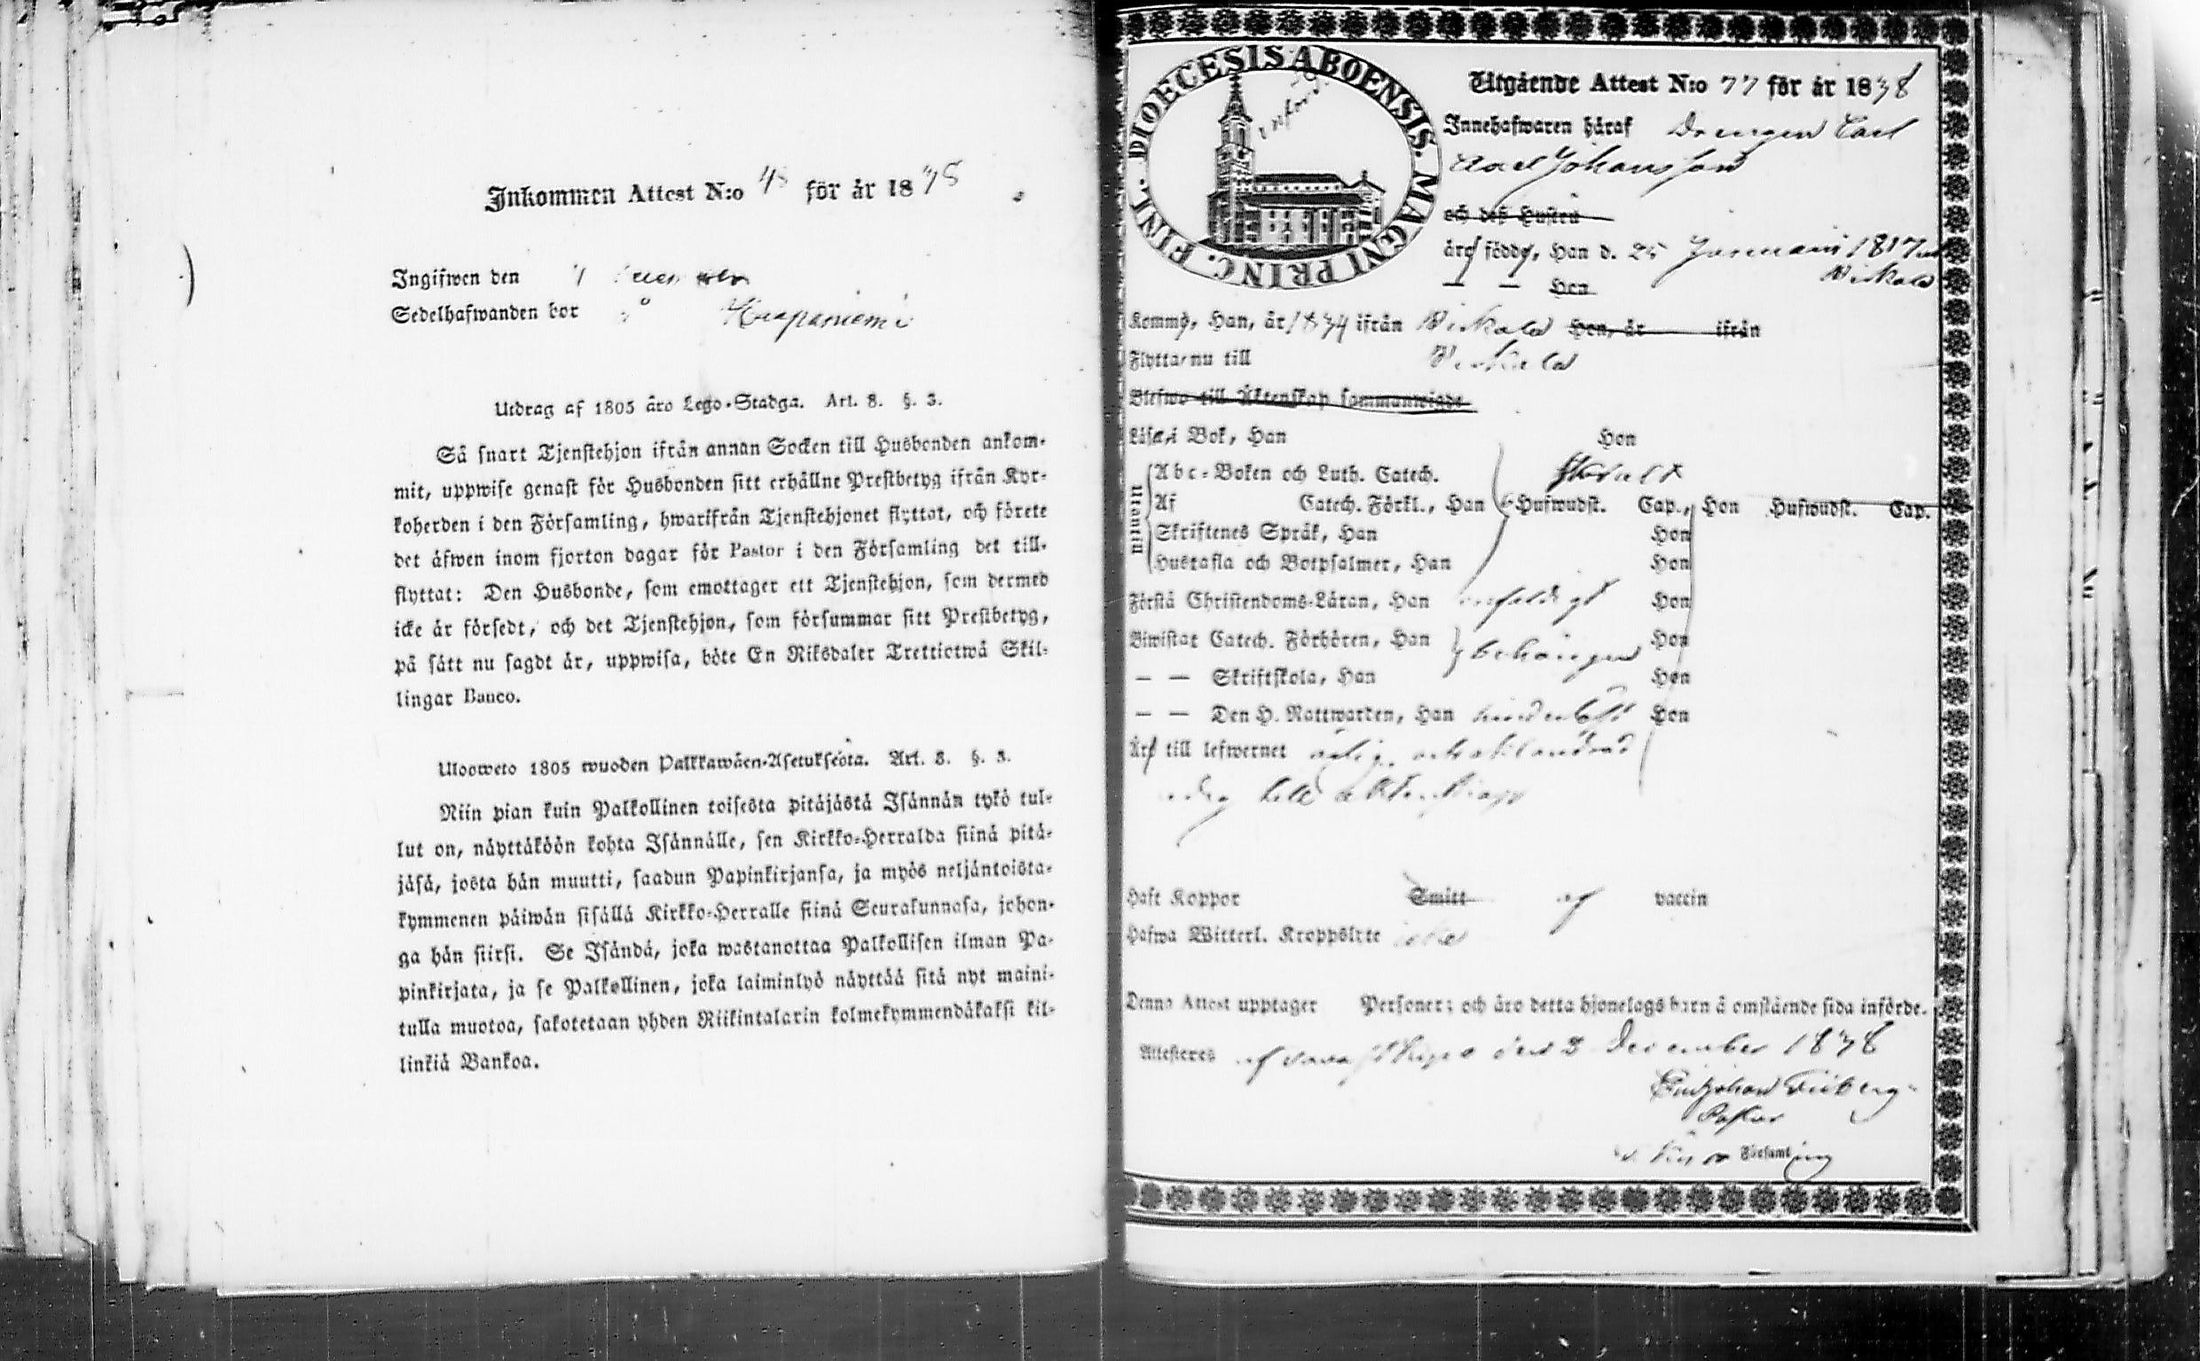 Inkommen Attest N:o 48 för år 1838
Ingifwen den
Sedelhafwanden bor å Haapaniemi
Utdrag af 1805 års Lego-Stadga. Art. 8. §. 3.
Så snart Tjenstehjon ifrån annan Socken till Husbonden ankom-
mit, uppwise genast för Husbonden sitt erhållne Prestbetyg ifrån Kyr-
koherden i den Församling, hwarifrån Tjenstehjonet flyttat, och förete
det äfwen inom fjorton dagar för Pastor i den Församling det till-
flyttat: Den Husbonde, som emottager ett Tjenstehjon, som dermed
icke är försedt, och det Tjenstehjon, som försummar sitt Prestbetyg,
på sätt nu sagdt är, uppwisa, böte En Riksdaler Trettiotwå Skil-
lingar Banco.
Ulosweto 1805 wuoden Palkkawäen-Asetuksesta. Art. 8. §. 3.
Niin pian kuin Palkollinen toisesta pitäjästä Isännän tykö tul-
lut on, näyttäköön kohta Isännälle, sen Kirkko-Herralda siinä pitä-
jäsä, josta hän muutti, saadun Papinkirjansa, ja myös neljäntoista-
kymmenen päiwän sisällä Kirkko-Herralle siinä Seurakunnasa, johon-
ga hän siirsi. Se Isändä, joka wastanottaa Palkollisen ilman Pa-
pinkirjata, ja se Palkollinen, joka laiminlyö näyttää sitä nyt maini-
tulla muotoa, sakotetaan yhden Riikintalarin kolmekymmendäkaksi kil-
linkiä Bankoa.
DIOECESIS ABOENSIS. MAGNI PRINC. FINL.
införd
Utgående Attest N:o 77 för år 1838
Innehafwaren häraf Drengen Carl
Axel Johansson
och deß Hustru
äro födde, Han d. 25 Januarii 1817 i
Wirkala
— — Hon
Komm, Han, år 1834 ifrån Hon, år ifrån
Flytta nu till
Blefwo till Äktenskap sammanwigde
Läsa i Bok, Han Hon
Utantill
Abc-Boken och Luth. Catech.
Af Catech. Förkl., Han Hufwudst. Cap., Hon Hufwudst. Cap.
Skriftenes Språk, Han Hon
Hustafla och Botpsalmer, Han Hon
Förstå Christendoms-Läran, Han enfaldigt Hon
Biwistat Catech. Förhören, Han behörigen Hon
— — Skriftskola, Han Hon
— — Den H. Nattwarden, Han Hon
Äro till lefwernet ärlig och
ledig till äktenskap
Haft Koppor Smitt af vaccin
Hafwa Witterl. Kroppslyte
Denna Attest upptager Personer; och äro detta hjonelags barn å omstående sida införde.
Attesteres af den 3 December 1838
Pastor
Församling